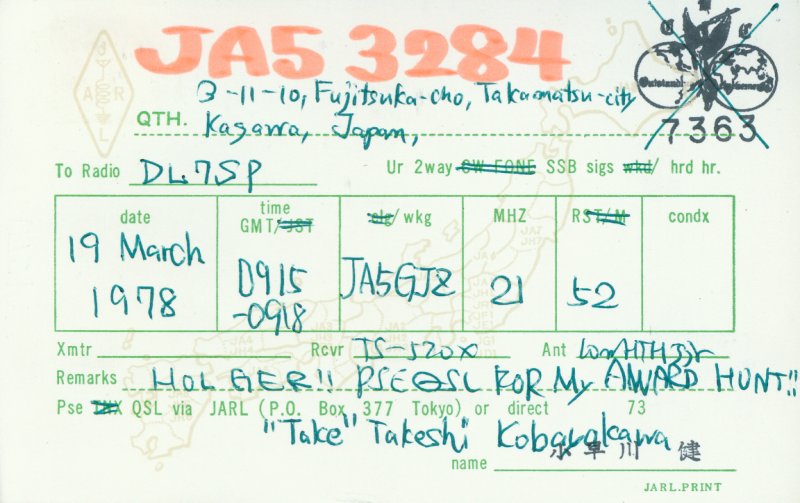 JA5 3284
3-11-10, Fujitsuka-cho, Takamatsu-city
QTH. Kagawa, Japan,
7363
J A R L
To Radio DL7SP Ur 2way CW FONE SSB sigs wkd/ hrd hr.
date time GMT/JST clg/wkg MHZ RST/M condx
19 March 1978 0915-0918 JA5GJZ 21 52
Xmtr Rcvr TS-520X Ant
Remarks HOLGER!! PSE QSL FOR My AWARD HUNT!!
Pse TNX QSL via JARL (P.O. Box 377 Tokyo) or direct 73
"Take" Takeshi Kobayakawa
name 小早川 健
JARL.PRINT